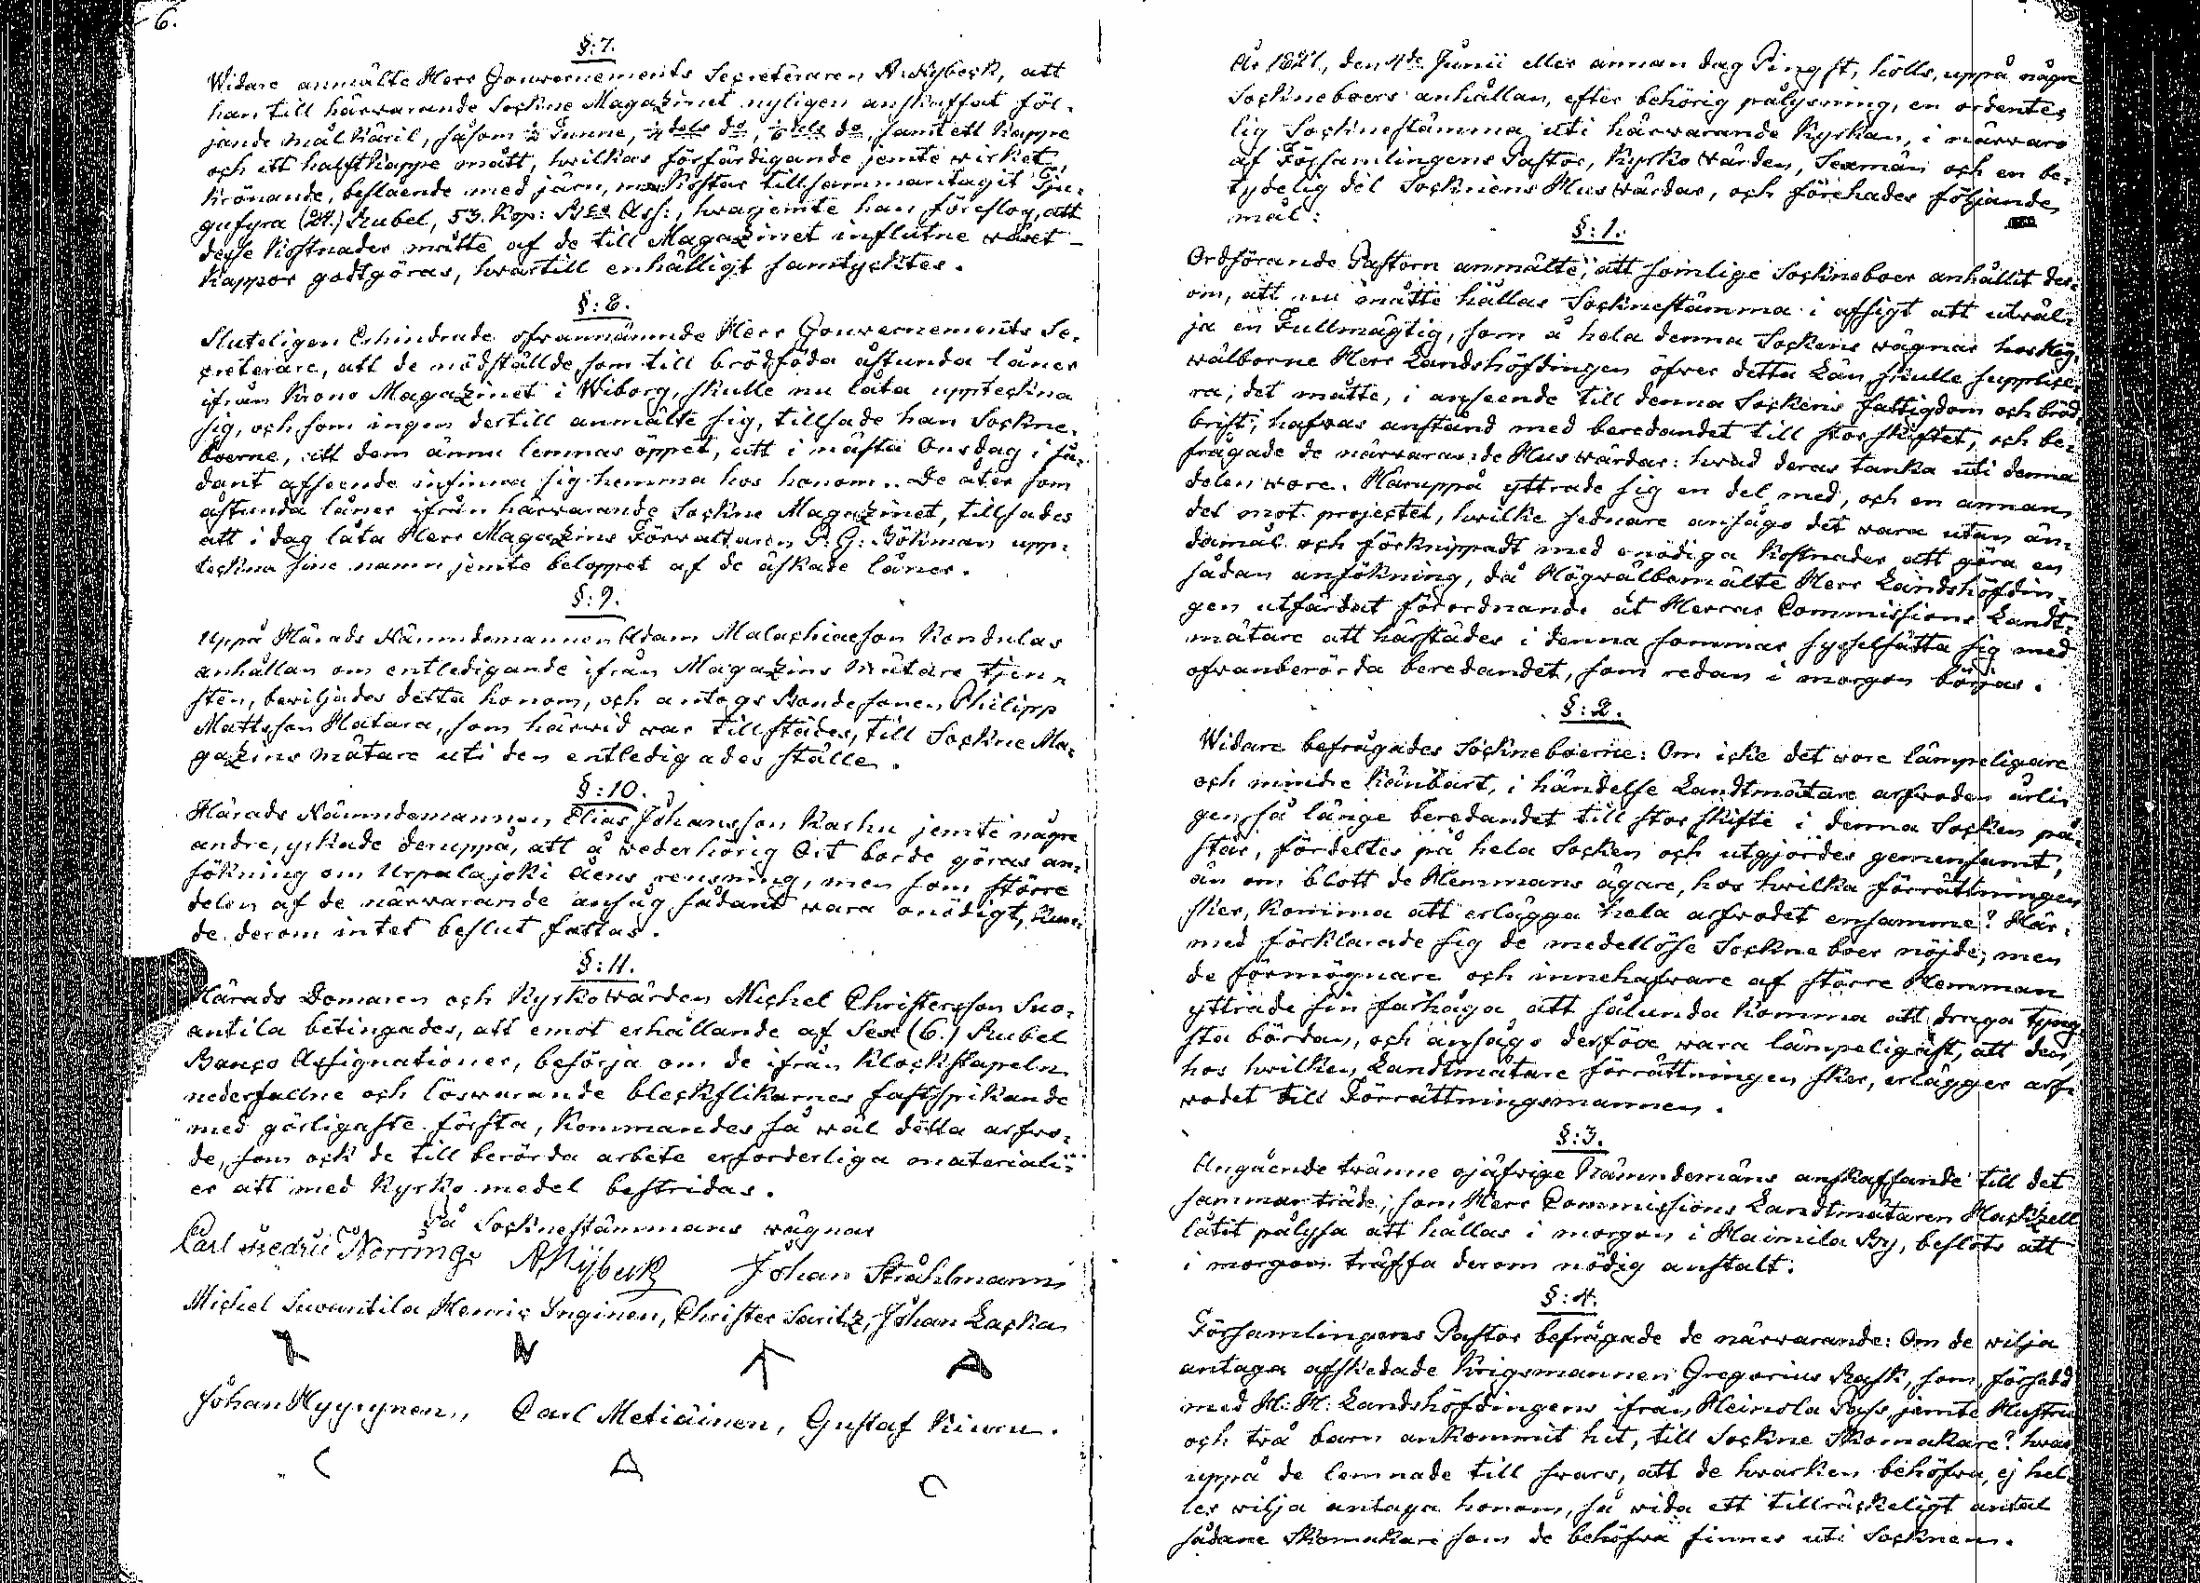 6.
§:7.
Widare anmälte Herr Gouvernements Secreteraren A. Nybeck, att
han till härwarande Sockne Magazinet nyligen anskaffat föl-
jande mål käril, såsom ½ Tunne, ¼ dels do, ⅛ dels do, samt ett Kappe
och ett halftkappe mått, hwilkas förfärdigande jemte wirket,
Krönande, beslående med järn, m.m. kostar tillsammantagit Tju-
gufyra (24.) Rubel, 53. Kop: Bco Ass:, hwarjemte han föreslog, att
desse kostnader måtte af de till Magazinet influtne
Kappor godtgöras, hwartill enhälligt samtycktes.
§:8.
Sluteligen Erhindrade ofvannämnde Herr Gouvernements Se-
creterare, att de nödställde, som till brödföda åstunda låner
ifrån Krono Magazinet i Wiborg, skulle nu låta uppteckna
sig, och som ingen dertill anmälte sig, tillsade han Sockne-
boerne, att dem ännu lemnas öppet, att i nästa Onsdag i så-
dant afseende infinna sig hemma hos honom. De åter som
åstunda låner ifrån härwarande Sockne Magazinet, tillsades
att i dag låta Herr Magazins Förwaltaren P. G. Böhman upp-
teckna sine namn jemte beloppet af de äskade låner.
§:9.
Uppå Härads Nämndemannen Adam Malachiaeson Kondulas
anhållan om entledigande ifrån Magazins Mätare tjen-
sten, bewiljades detta honom, och antogs Bondesonen Philipp
Mattsson Hatara, som härwid war tillstädes, till Sockne Ma-
gazins mätare uti den entledigades ställe.
§:10.
Härads Nämndemannen Elias Johansson Karhu jemte någre
andre, yrkade deruppå, att å wederbörig Ort borde göras an-
sökning om Urpalajoki åens rensning, men som större
delen af de närwarande ansåg sådant wara onödigt, kun-
de derom intet beslut fattas.
§:11.
Härads Domaren och Kyrkowärden Michel Christersson Suo-
antila betingades, att emot erhållande af Sex (6.) Rubel
Banco Assignationer, besörja om de ifrån Klockstapeln
nederfallne och löswarande bleckflikarnes fastspikande
med görligaste första, kommandes så wäl detta arfwo-
de, som ock de till berörda arbete erforderliga materiali-
er att med Kyrko medel bestridas.
På Socknestämmans wägnar
Carl Fredric Norring. A. Nybeck Johan Stråhlmann
Michel Suwantila Henric Inginen, Christer Saritz, Johan Lacka
Johan Hyyrynen, Carl Metiäinen, Gustaf Kiuru.
År 1827, den 4de Junii eller annan dag Pingst, hölls, uppå någre
Sockneboers anhållan, efter behörig pålysning, en ordente-
lig Socknestämma uti härwarande Kyrkan, i närwaro
af Församlingens Pastor, Kyrko wärden, Sexmän och en be-
tydelig del Socknens Huswärdar, och förehades följande
mål:
§:1.
Ordförande Pastorn anmälte, att somlige Sockneboer anhållit der-
om, att nu måtte hållas Socknestämma i afsigt att utwäl-
ja en Fullmägtig, som å hela denna Sockens wägnar hos Hög-
wälborne Herr Landshöfdingen öfver detta Län, skulle supplice-
ra, det måtte, i anseende till denna Sockens fattigdom och bröd-
brist, hafwas anstånd med beredandet till storskiftet, och be-
frågade de närwarande Huswärdar: hwad deras tanka uti denna
delen wore. Häruppå yttrade sig en del med, och en annan
del mot projectet, hwilke sednare ansågo det wara utan än-
damål och förknippadt med onödiga kostnader att göra en
sådan ansökning, då Högwälbemälte Herr Landshöfdin-
gen utfärdat förordnande åt Herrar Commissions Landt-
mätare att härstädes i denna sommar sysselsätta sig med
ofvanberörda beredandet, som redan i morgon börjas.
§:2.
Widare befrågades Sockneboerne: Om icke det wore lämpeligare
och mindre kännbart, i händelse Landtmätare arfwoden årli-
gen, så länge beredandet till storskifte i denna Socken på-
står, fördeltes på hela Socken och utgjordes gemensamt,
än om blott de Hemmans ägare, hos hwilka förrättningen
sker, komma att erlägga hela arfwodet ensamme? Här-
med förklarade sig de medellöse Sockneboer nöjde; men
de förmögnare och innehafware af större Hemman
yttrade sin farhåga att sålunda komma att draga tyng-
sta bördan, och ansågo derföre wara lämpeligast, att den,
hos hwilken Landtmätare förrättningen sker, erlägger arf-
wodet till Förrättningsmannen.
§:3.
Angående twänne ojäfwige Nämndemäns anskaffande till det
sammanträde, som Herr Commissions Landtmätaren Hackzell
låtit pålysa att hållas i morgon i Haimila By, beslöts att
i morgon träffa derom nödig anstalt.
§:4.
Församlingens Pastor befrågade de närwarande: Om de wilja
antaga afskedade Krigsmannen Gregorius Rask, som försedd
med H: H: Landshöfdingens ifrån Heinola Pass, jemte Hustru
och två barn ankommit hit, till Sockne Skomakare? hwar-
uppå de lemnade till swars, att de hwarken behöfwa, ej hel-
ler wilja antaga honom, så wida ett tillräckeligt antal
sådane Skomakare som de behöfwa finnes uti Socknen.